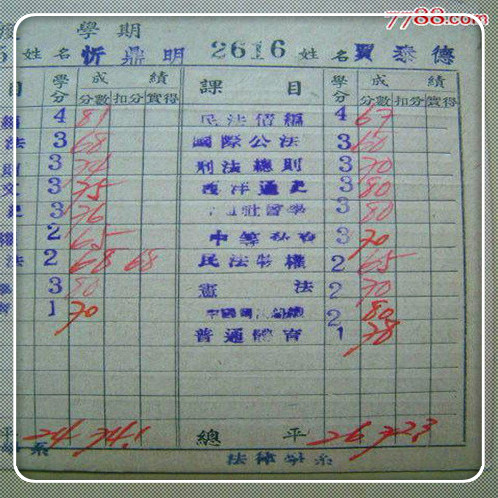 7788.com
學期
姓名 忻鼎明 2616 姓名 賈泰德
目 學分 成績 課目 學分 成績
分數 扣分 實得 分數 扣分 實得
4 81 民法債編 4 67
法 3 68 國際公法 3 60
則 3 74 刑法總則 3 70
3 75 西洋通史 3 80
3 76 3 80
2 65 3 70
法 2 68 68 民法物權 2 65
3 80 憲法 2 70
1 70 2 80
普通體育 1 78
24 74.1 總平 26 72.3
系 法律學系